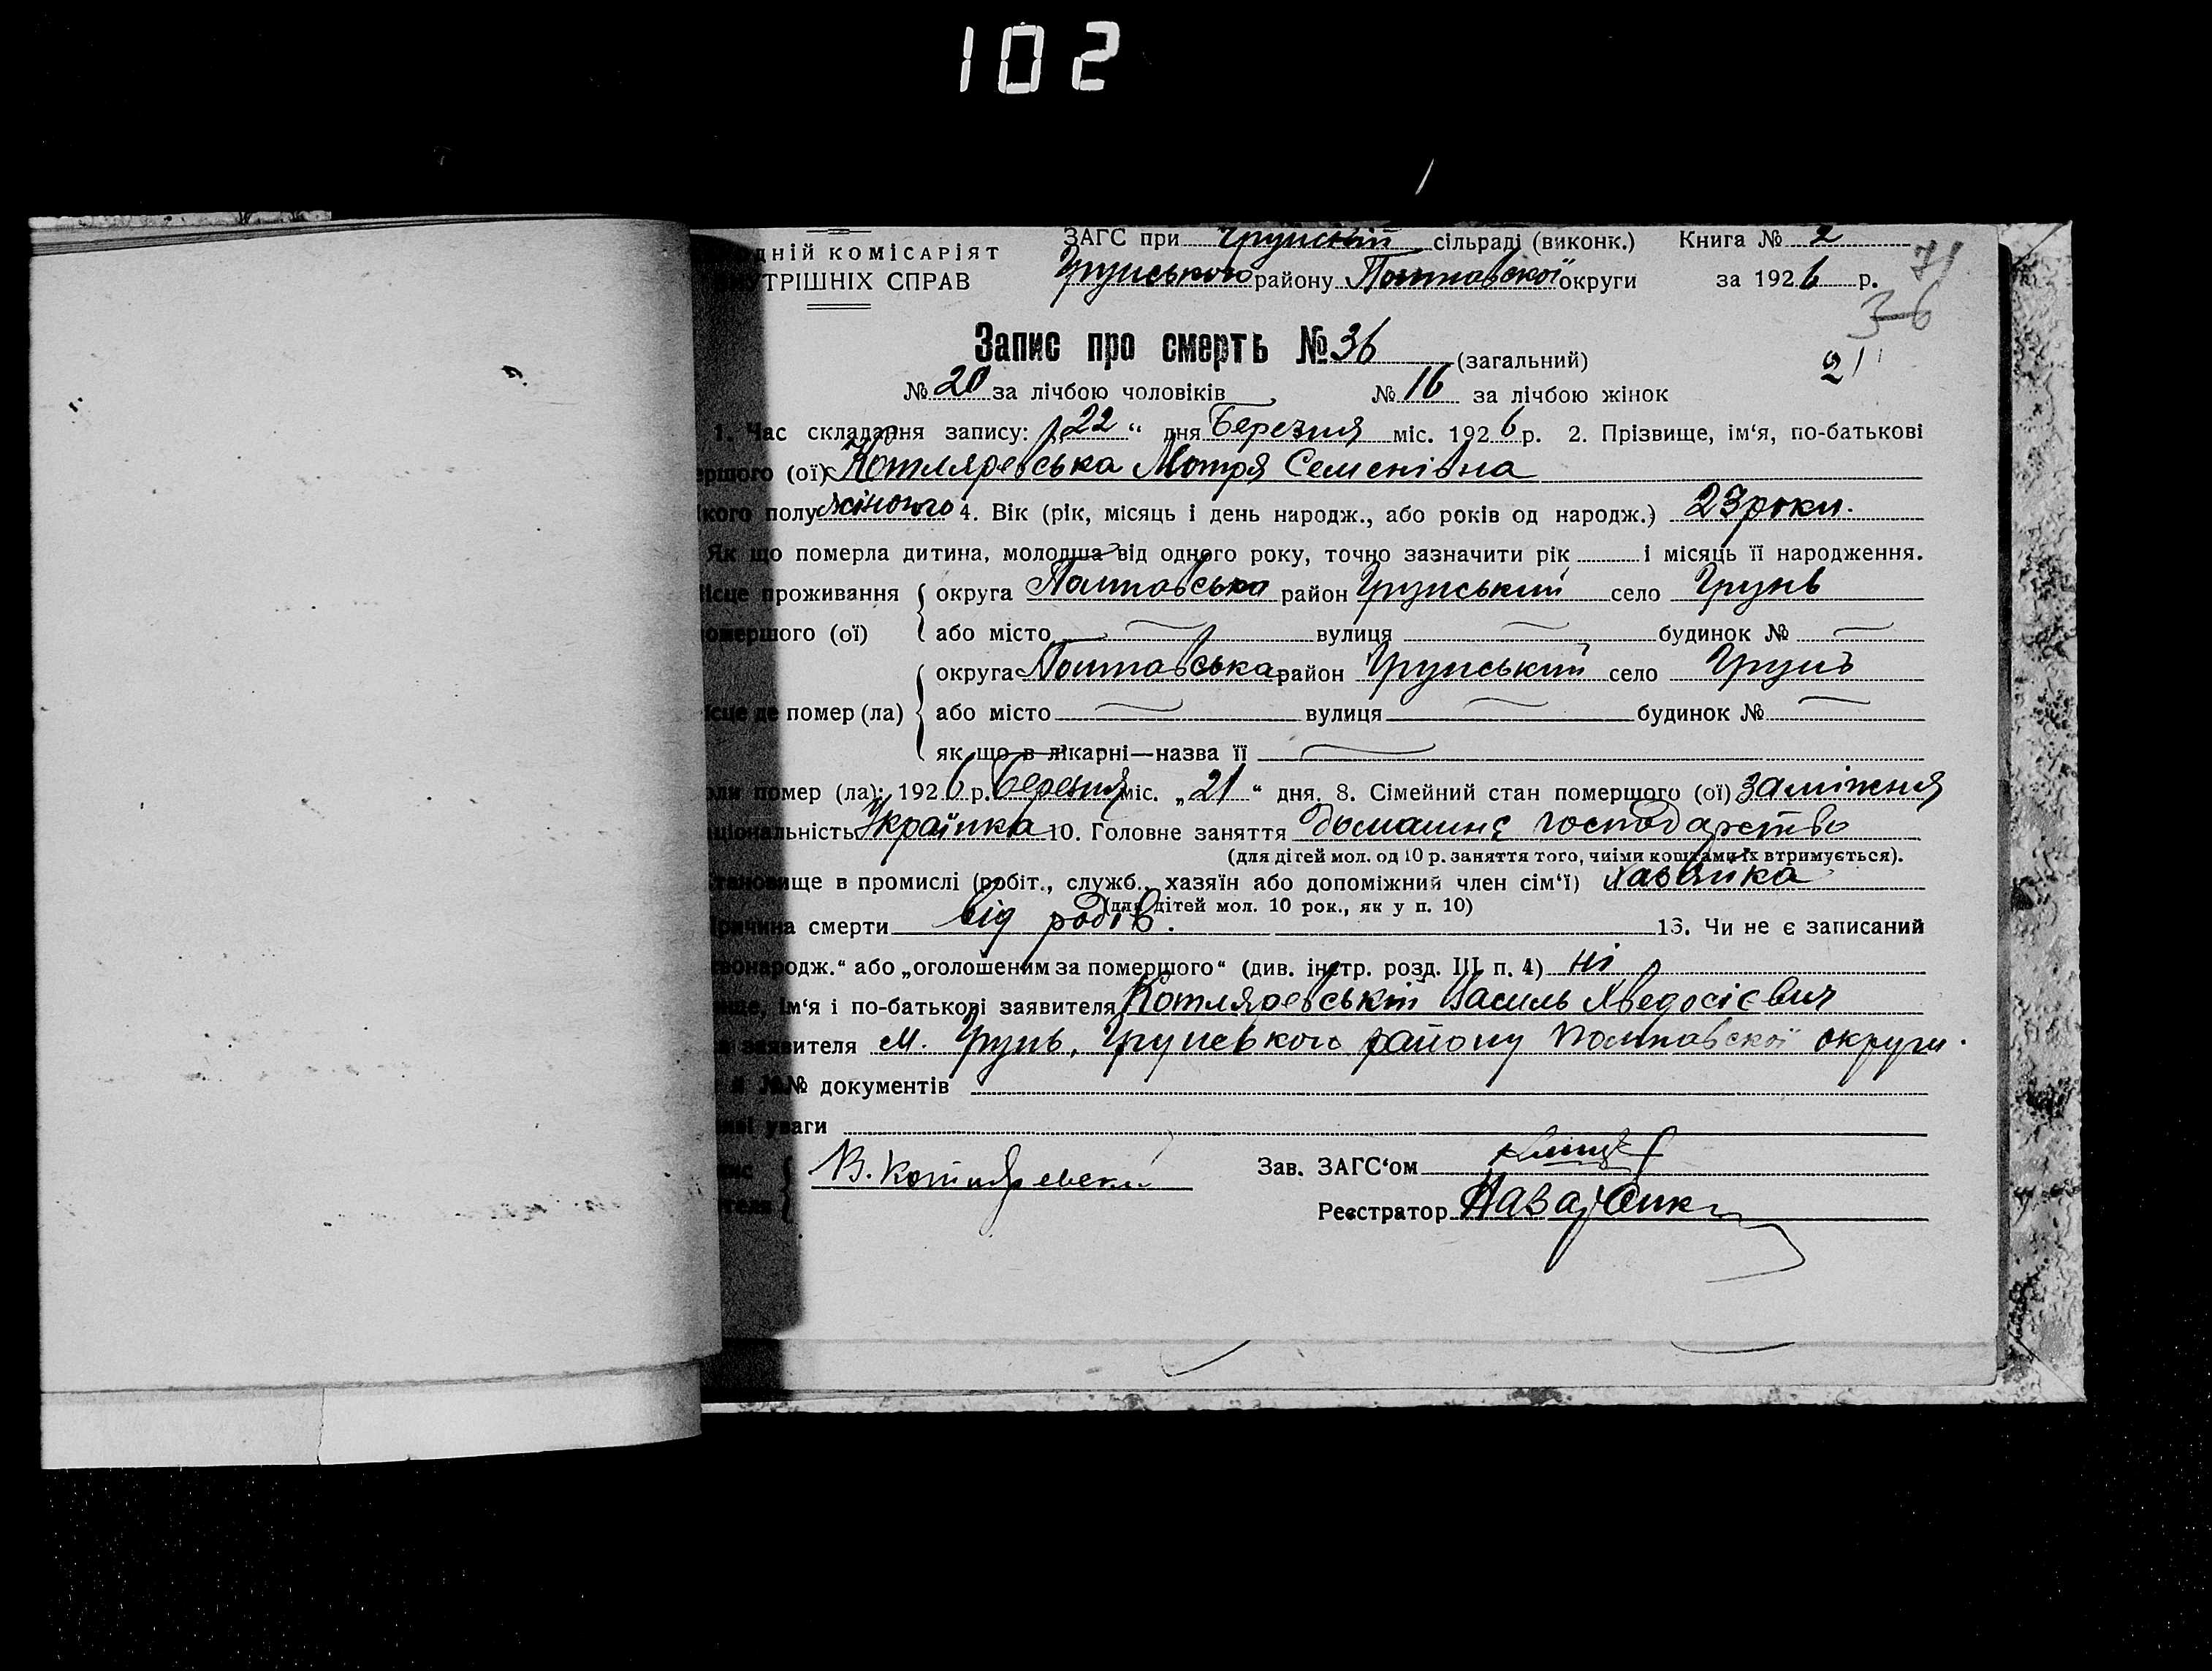 102
ЗАГС при Грунській сільраді (виконк.) Книга № 2
дній комісаріят
Грунського району Полтавської округи за 1926 р.
71
УТРІШНІХ СПРАВ
36
Запис про смерть № 36 (загальний)
21
№ 20 за лічбою чоловіків № 16 за лічбою жінок
1. Час складання запису: „22“ дня Березня міс. 1926 р. 2. Прізвище, ім‘я, по-батькові
ершого (ої) Котляревська Мотря Семенівна
кого полу жіночого 4. Вік (рік, місяць і день народж., або років од народж.) 23 роки.
Як що померла дитина, молодша від одного року, точно зазначити рік і місяць її народження.
ісце проживання округа Полтавська район Грунський село Грунь
омершого (ої) або місто — вулиця — будинок № —
округа Полтавська район Грунський село Грунь
ісце де помер (ла) або місто — вулиця — будинок № —
як що в лікарні—назва її —
оли помер (ла): 1926 р. Березня міс. „21“ дня. 8. Сімейний стан помершого (ої) заміжня
ціональність Українка 10. Головне заняття домашнє господарство
(для дітей мол. од 10 р. заняття того, чиїми коштами їх втримується).
тановище в промислі (робіт., служб., хазяїн або допоміжний член сім‘ї) хазяйка
(для дітей мол. 10 рок., як у п. 10)
ричина смерти від родів. 13. Чи не є записаний
вонародж.“ або „оголошеним за помершого“ (див. інстр. розд. III п. 4) ні
ище, ім‘я і по-батькові заявителя Котляревській Василь Хведосієвич
заявителя м. Грунь, Грунського району Полтавскої округи.
й №№ документів
иві уваги
ис В. Котляревски Зав. ЗАГС‘ом
теля Реєстратор